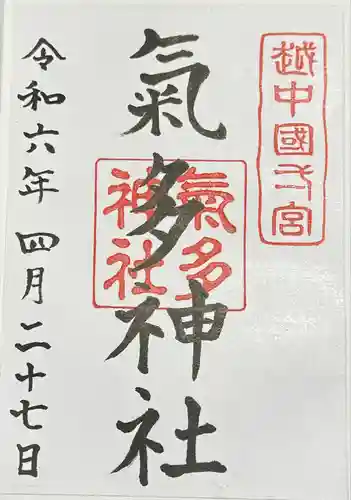 越中國一宮
氣多神社
氣多神社
令和六年 四月二十七日